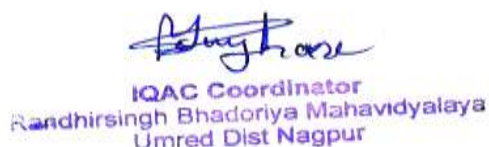 IQAC Coordinator
Randhirsingh Bhadoriya Mahavidyalaya
Umred Dist Nagpur